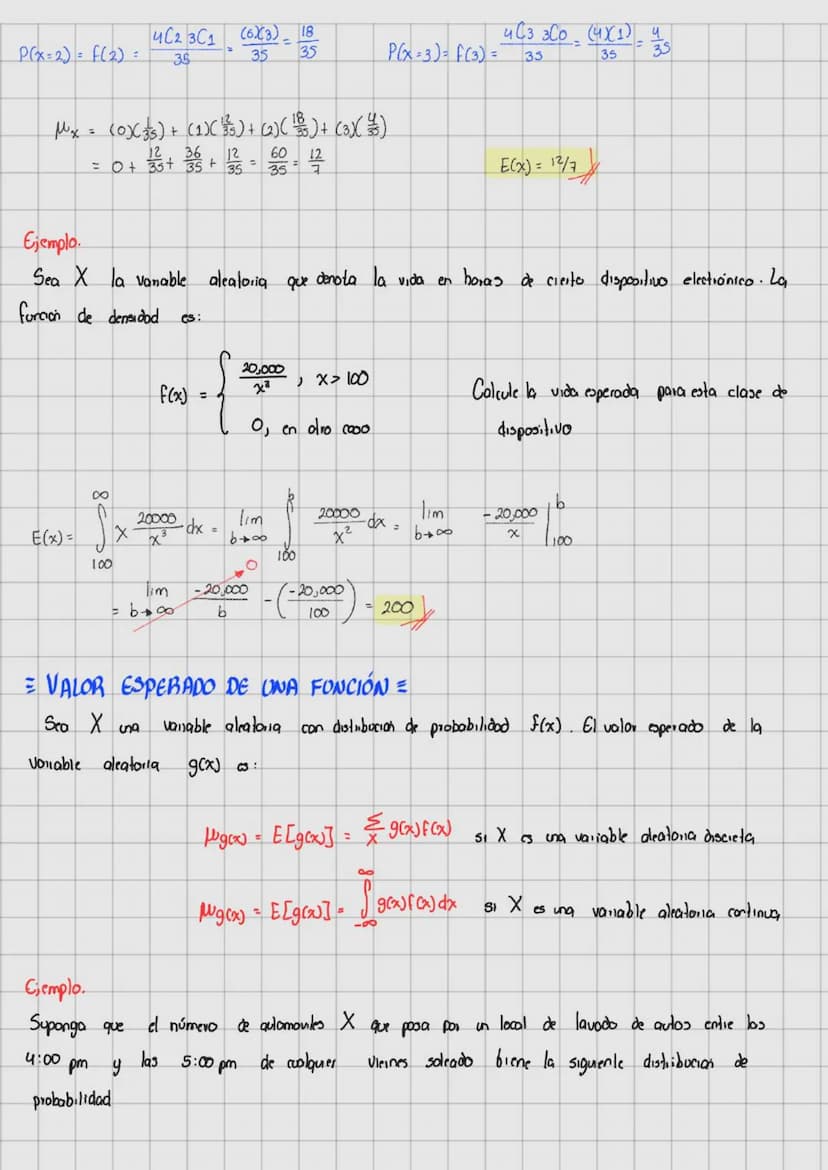 P(x=2) = f(2) = 4C2 3C1 / 35 = (6)(3) / 35 = 18/35    P(x=3) = f(3) = 4C3 3C0 / 35 = (4)(1) / 35 = 4/35
μx = (0)(1/35) + (1)(12/35) + (2)(18/35) + (3)(4/35)
= 0 + 12/35 + 36/35 + 12/35 = 60/35 = 12/7    E(x) = 12/7
Ejemplo.
Sea X la variable aleatoria que denota la vida en horas de cierto dispositivo electrónico. La
función de densidad es:
f(x) = { 20,000/x³ , x > 100
0, en otro caso
Calcule la vida esperada para esta clase de
dispositivo
E(x) = ∫₁₀₀^∞ x 20000/x³ dx = lim b→∞ ∫₁₀₀^b 20000/x² dx = lim b→∞ -20,000/x |₁₀₀^b
= lim b→∞ -20,000/b 0 - (-20,000/100) = 200
≡ VALOR ESPERADO DE UNA FUNCIÓN ≡
Sea X una variable aleatoria con distribución de probabilidad f(x). El valor esperado de la
variable aleatoria g(x) es:
μg(x) = E[g(x)] = Σx g(x)f(x) si X es una variable aleatoria discreta
μg(x) = E[g(x)] = ∫₋∞^∞ g(x)f(x)dx si X es una variable aleatoria continua
Ejemplo.
Suponga que el número de automoviles X que pasa por un local de lavado de autos entre las
4:00 pm y las 5:00 pm de cualquier viernes soleado tiene la siguiente distribución de
probabilidad